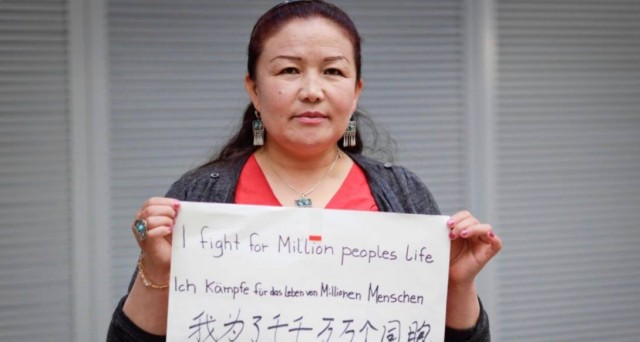 I fight for Million peoples life
Ich Kämpfe für das Leben von Millionen Menschen
我为了千千万万个同胞